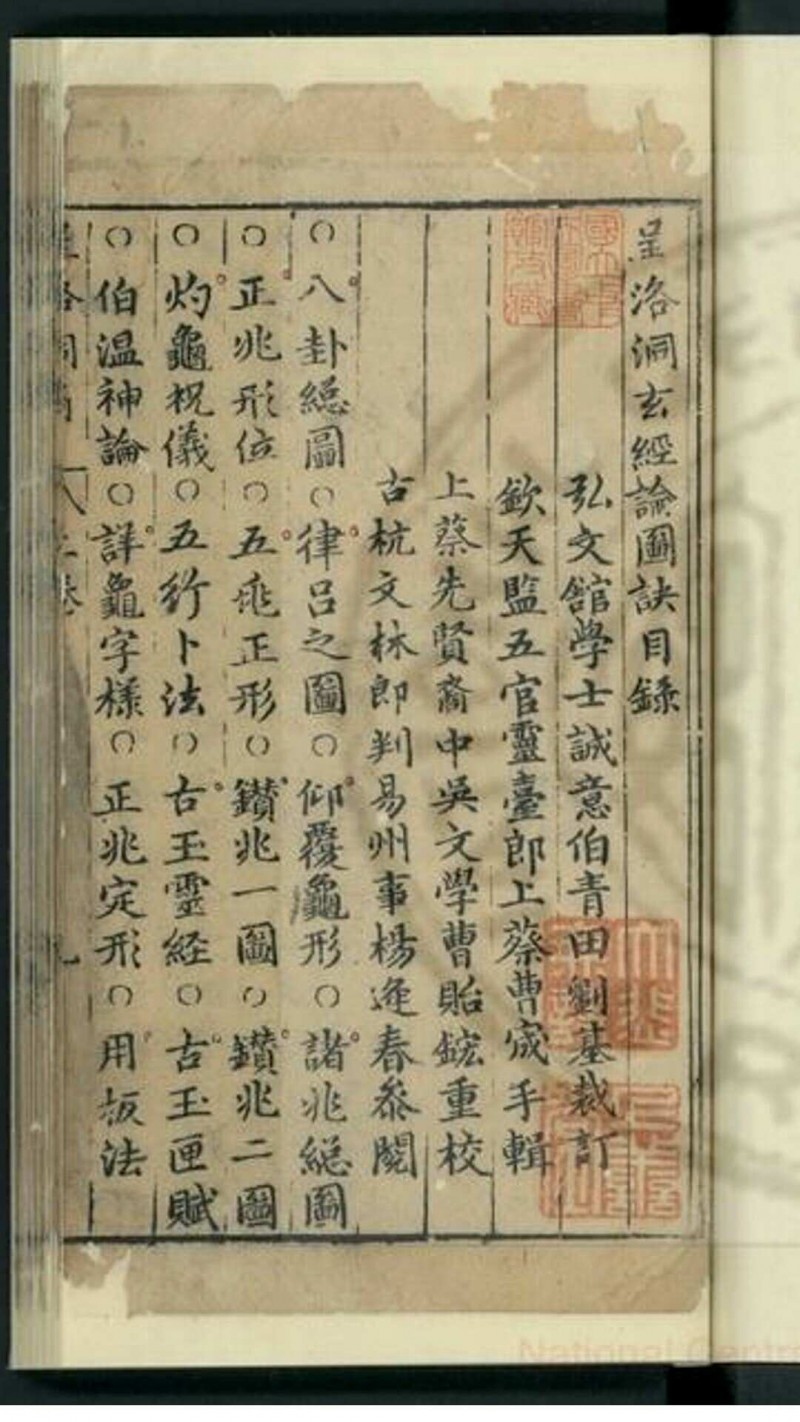 呈洛洞玄經論圖訣目錄
弘文館學士誠意伯青田劉基裁訂
欽天監五官靈臺郎上蔡曹宬手輯
上蔡先賢裔中吳文學曹貽鋐重校
古杭文林郎判易州事楊逢春叅閱
○八卦緫圖○律呂之圖○仰覆龜形○諸兆緫圖
○正兆形位○五兆正形○鑚兆一圖○鑚兆二圖
○灼龜祝儀○五行卜法○古玉靈経○古玉匣賦
○伯温神論○詳龜字樣○正兆定形○用板法
National Centr